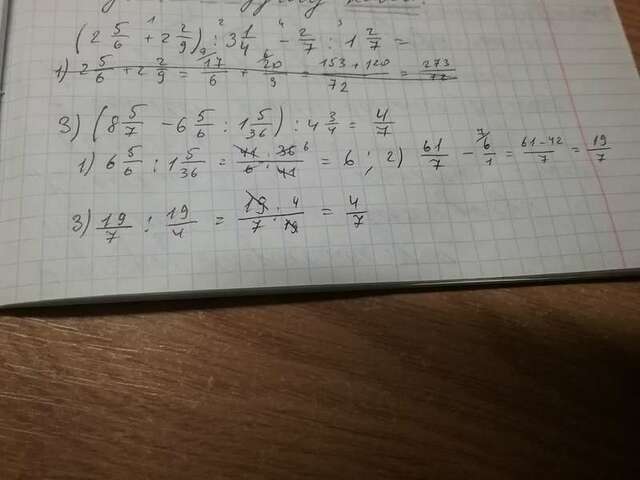 (2 5/6 + 2 2/9) : 3 1/4 - 2/7 : 1 2/7 =
1) 2 5/6 + 2 2/9 = 17/6 + 20/9 = 153 + 120/72 = 273/72
3) (8 5/7 - 6 5/6 : 1 5/36) : 4 3/4 = 4/7
1) 6 5/6 : 1 5/36 = 41 · 36/6 · 41 = 6 ; 2) 61/7 - 6/1 = 61 - 42/7 = 19/7
3) 19/7 : 19/4 = 19 · 4/7 · 19 = 4/7